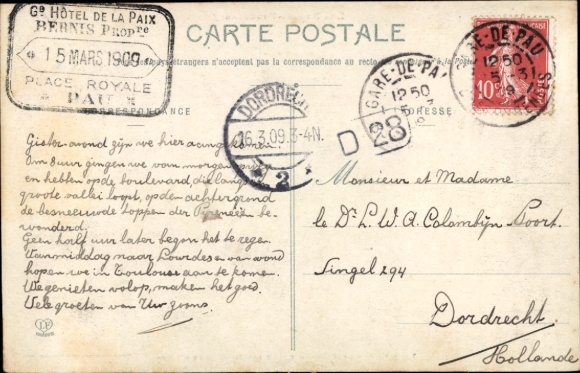 Gd HÔTEL DE LA PAIX
BERNIS PROPre
15 MARS 1909
PLACE ROYALE
* PAU *
CARTE POSTALE
étrangers n'acceptent pas la correspondance au recto
CORRESPONDANCE
ADRESSE
DORDRECHT
16.3.09.3-4N.
* 2 *
GARE-DE-PAU
12 50
D 28
GARE-DE-PAU
12 50
10c
Gisteravond zijn we hier aangekomen.
Om 8 uur gingen we vanmorgen
en hebben op de boulevard, die langs
groote vallei loopt, op den achtergrond
de besneeuwde toppen der Pyreneën be-
wonderd.
Geen half uur later begon het te regen
Vanmiddag naar Lourdes en van avond
hopen we in Toulouse aan te komen.
We genieten volop, maken het goed.
Vele groeten van Uw zoons.
Monsieur et Madame
le Dr. L. W. A. Colombijn-Poort.
Singel 294
Dordrecht
Hollande
LF